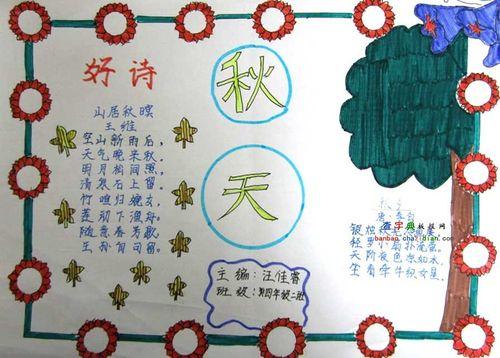 好诗
山居秋暝
王维
空山新雨后,
天气晚来秋.
明月松间照,
清泉石上留.
竹喧归女,
莲动下渔舟.
随意春芳歇,
王孙自可留.
秋
天
主编:汪佳睿
班级:四年级二班
秋夕
唐
查字典板报网
banbao.chazidian.com
银烛秋屏
轻罗小扇扑流萤.
天阶夜色凉如水.
坐看牵牛织女星.